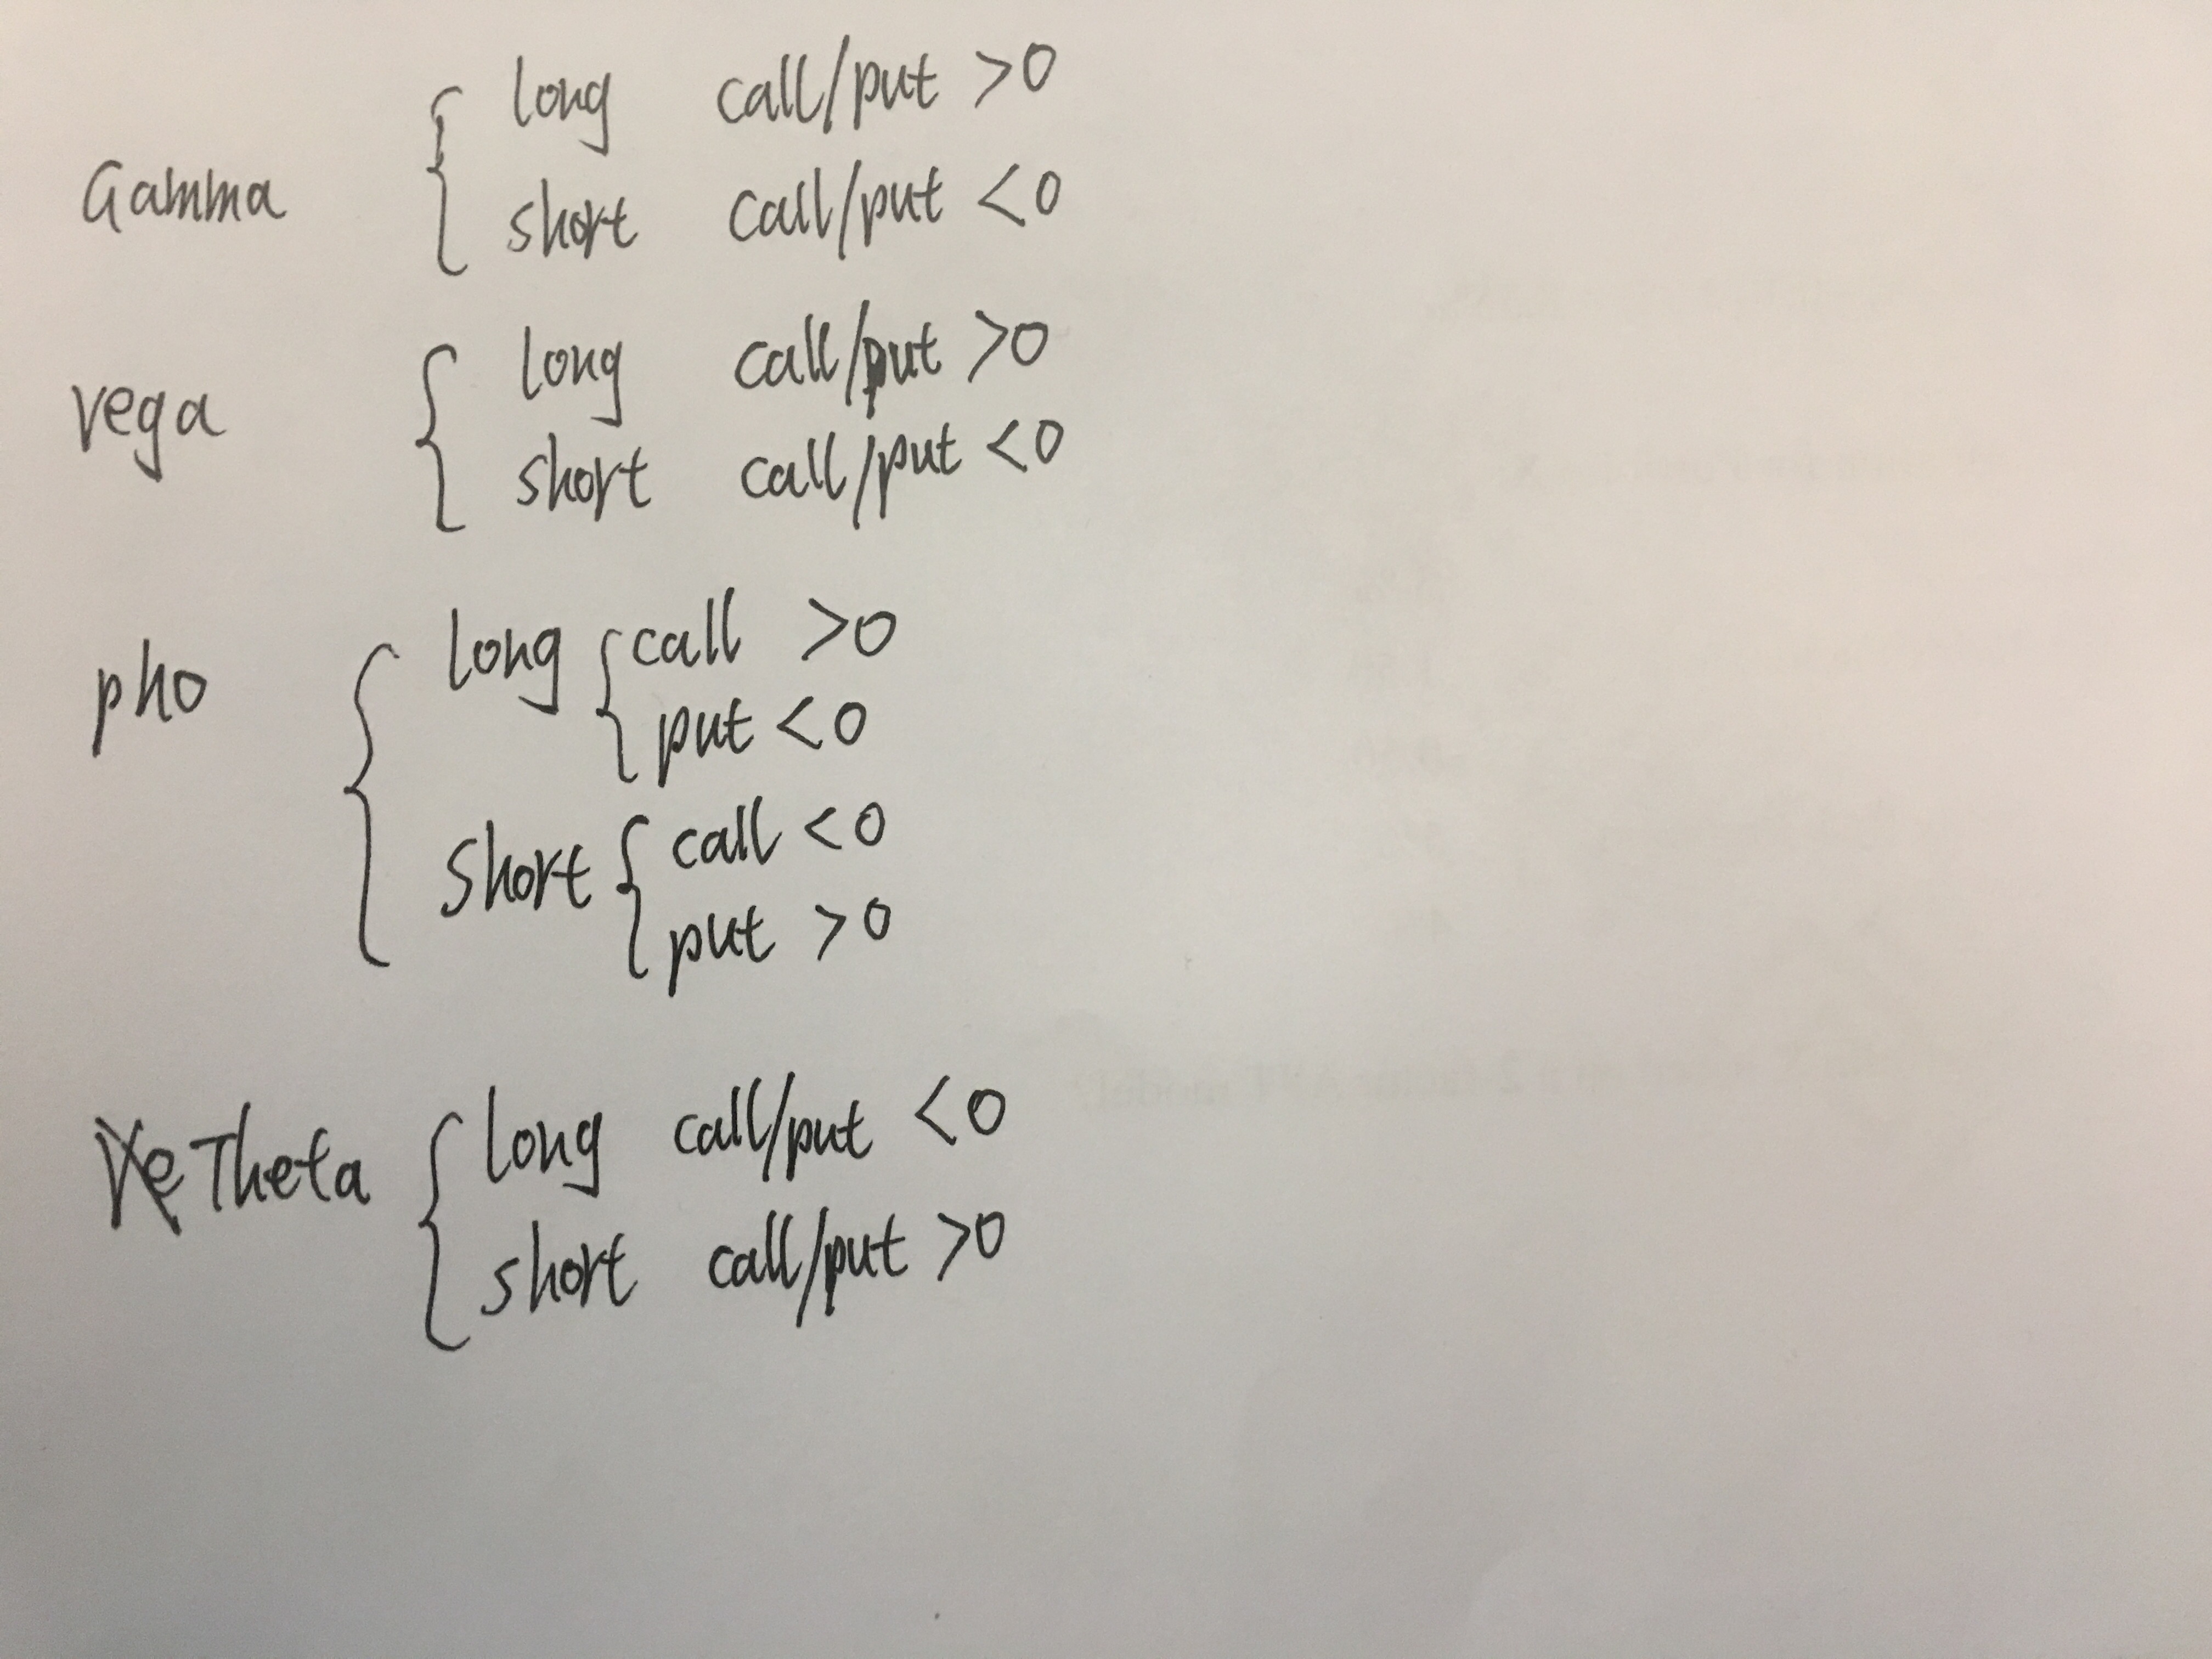 Gamma { long call/put >0
short call/put <0
vega { long call/put >0
short call/put <0
pho { long { call >0
put <0
short { call <0
put >0
Theta { long call/put <0
short call/put >0